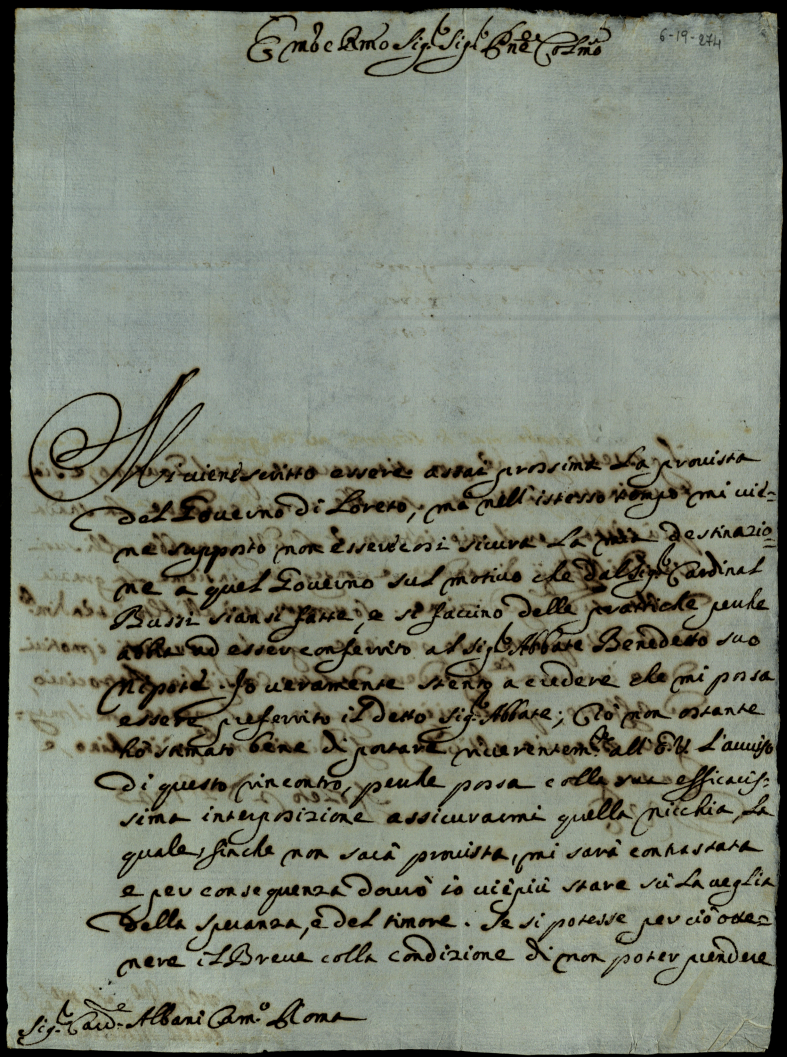 Em͂o e Rm͂o Sig.r Sig.r Pne͂ Col͂mo
6-19-274
Mi vien scritto essere assai prossima la provista
del Governo di Loreto, ma nell'istesso tempo mi vie=
ne supposto non essere così sicura la mia destinazio=
ne a quel Governo sul motivo che dal Sig.r Cardinal
Bussi siansi fatte, e si faccino delle prattiche perche
abbia ad esser conferito al Sig.r Abbate Benedetto suo
Nipote. Io veramente stento a credere che mi possa
essere preferito il detto Sig.r Abbate; Ciò non ostante
hò stimato bene di portare riverentem.te all'E.V. l'avviso
di questo rincontro, perche possa colla sua efficacis=
sima interposizione assicurarmi quella nicchia, la
quale, finche non sarà provista, mi sarà contrastata
e per consequenza dovrò io viè più stare sù la veglia
della speranza, e del timore. Se si potesse perciò otte=
nere il Breve colla condizione di non poter prendere
Sig.r Card.le Albani Cam.o Roma